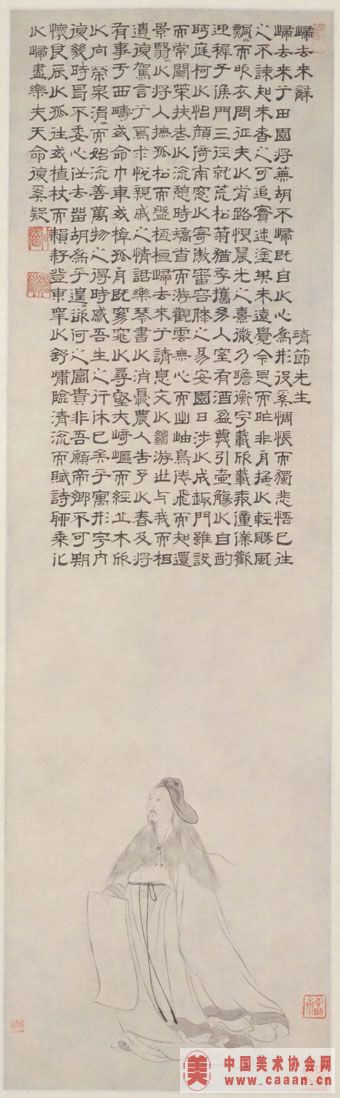 歸去來辭
靖節先生
歸去來兮田園將蕪胡不歸既自以心為形役奚惆悵而獨悲悟已往
之不諫知來者之可追實迷塗其未遠覺今是而昨非舟搖以輕颺風
飄而吹衣問征夫以前路恨晨光之熹微乃瞻衡宇載欣載奔僮僕歡
迎稚子候門三徑就荒松菊猶存攜幼入室有酒盈樽引壺觴以自酌
眄庭柯以怡顏倚南窓以寄傲審容膝之易安園日涉以成趣門雖設
而常關策扶老以流憩時矯首而游觀雲無心而出岫鳥倦飛而知還
景翳翳以將入撫孤松而盤桓歸去來兮請息交以絕游世與我而相
遺復駕言兮焉求悅親戚之情話樂琴書以消憂農人告予以春及將
有事于西疇或命巾車或棹孤舟既窈窕以尋壑亦崎嶇而經丘木欣欣
以向榮泉涓涓而始流善萬物之得時感吾生之行休已矣乎寓形宇內
復幾時曷不委心任去留胡為乎遑遑欲何之富貴非吾願帝鄉不可期
懷良辰以孤往或植杖而耘耔登東皋以舒嘯臨清流而賦詩聊乘化
以歸盡樂夫天命復奚疑
美
中国美术协会网
www.caaan.cn